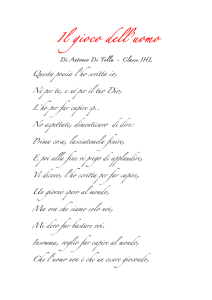 Il gioco dell'uomo
Di Antonio Di Tolla – Classe IHL
Questa poesia l'ho scritta io,
Né per te, e né per il tuo Dio,
L'ho per far capire sp..
No aspettate, dimenticavo di dire:
Prima cosa, lasciatemela finire,
E poi alla fine vi prego di applaudire,
Vi dicevo, l'ho scritta per far capire,
Un giorno spero al mondo,
Ma ora che siamo solo noi,
Mi devo far bastare voi.
Insomma, voglio far capire al mondo,
Che l'uomo non è che un essere giocondo,